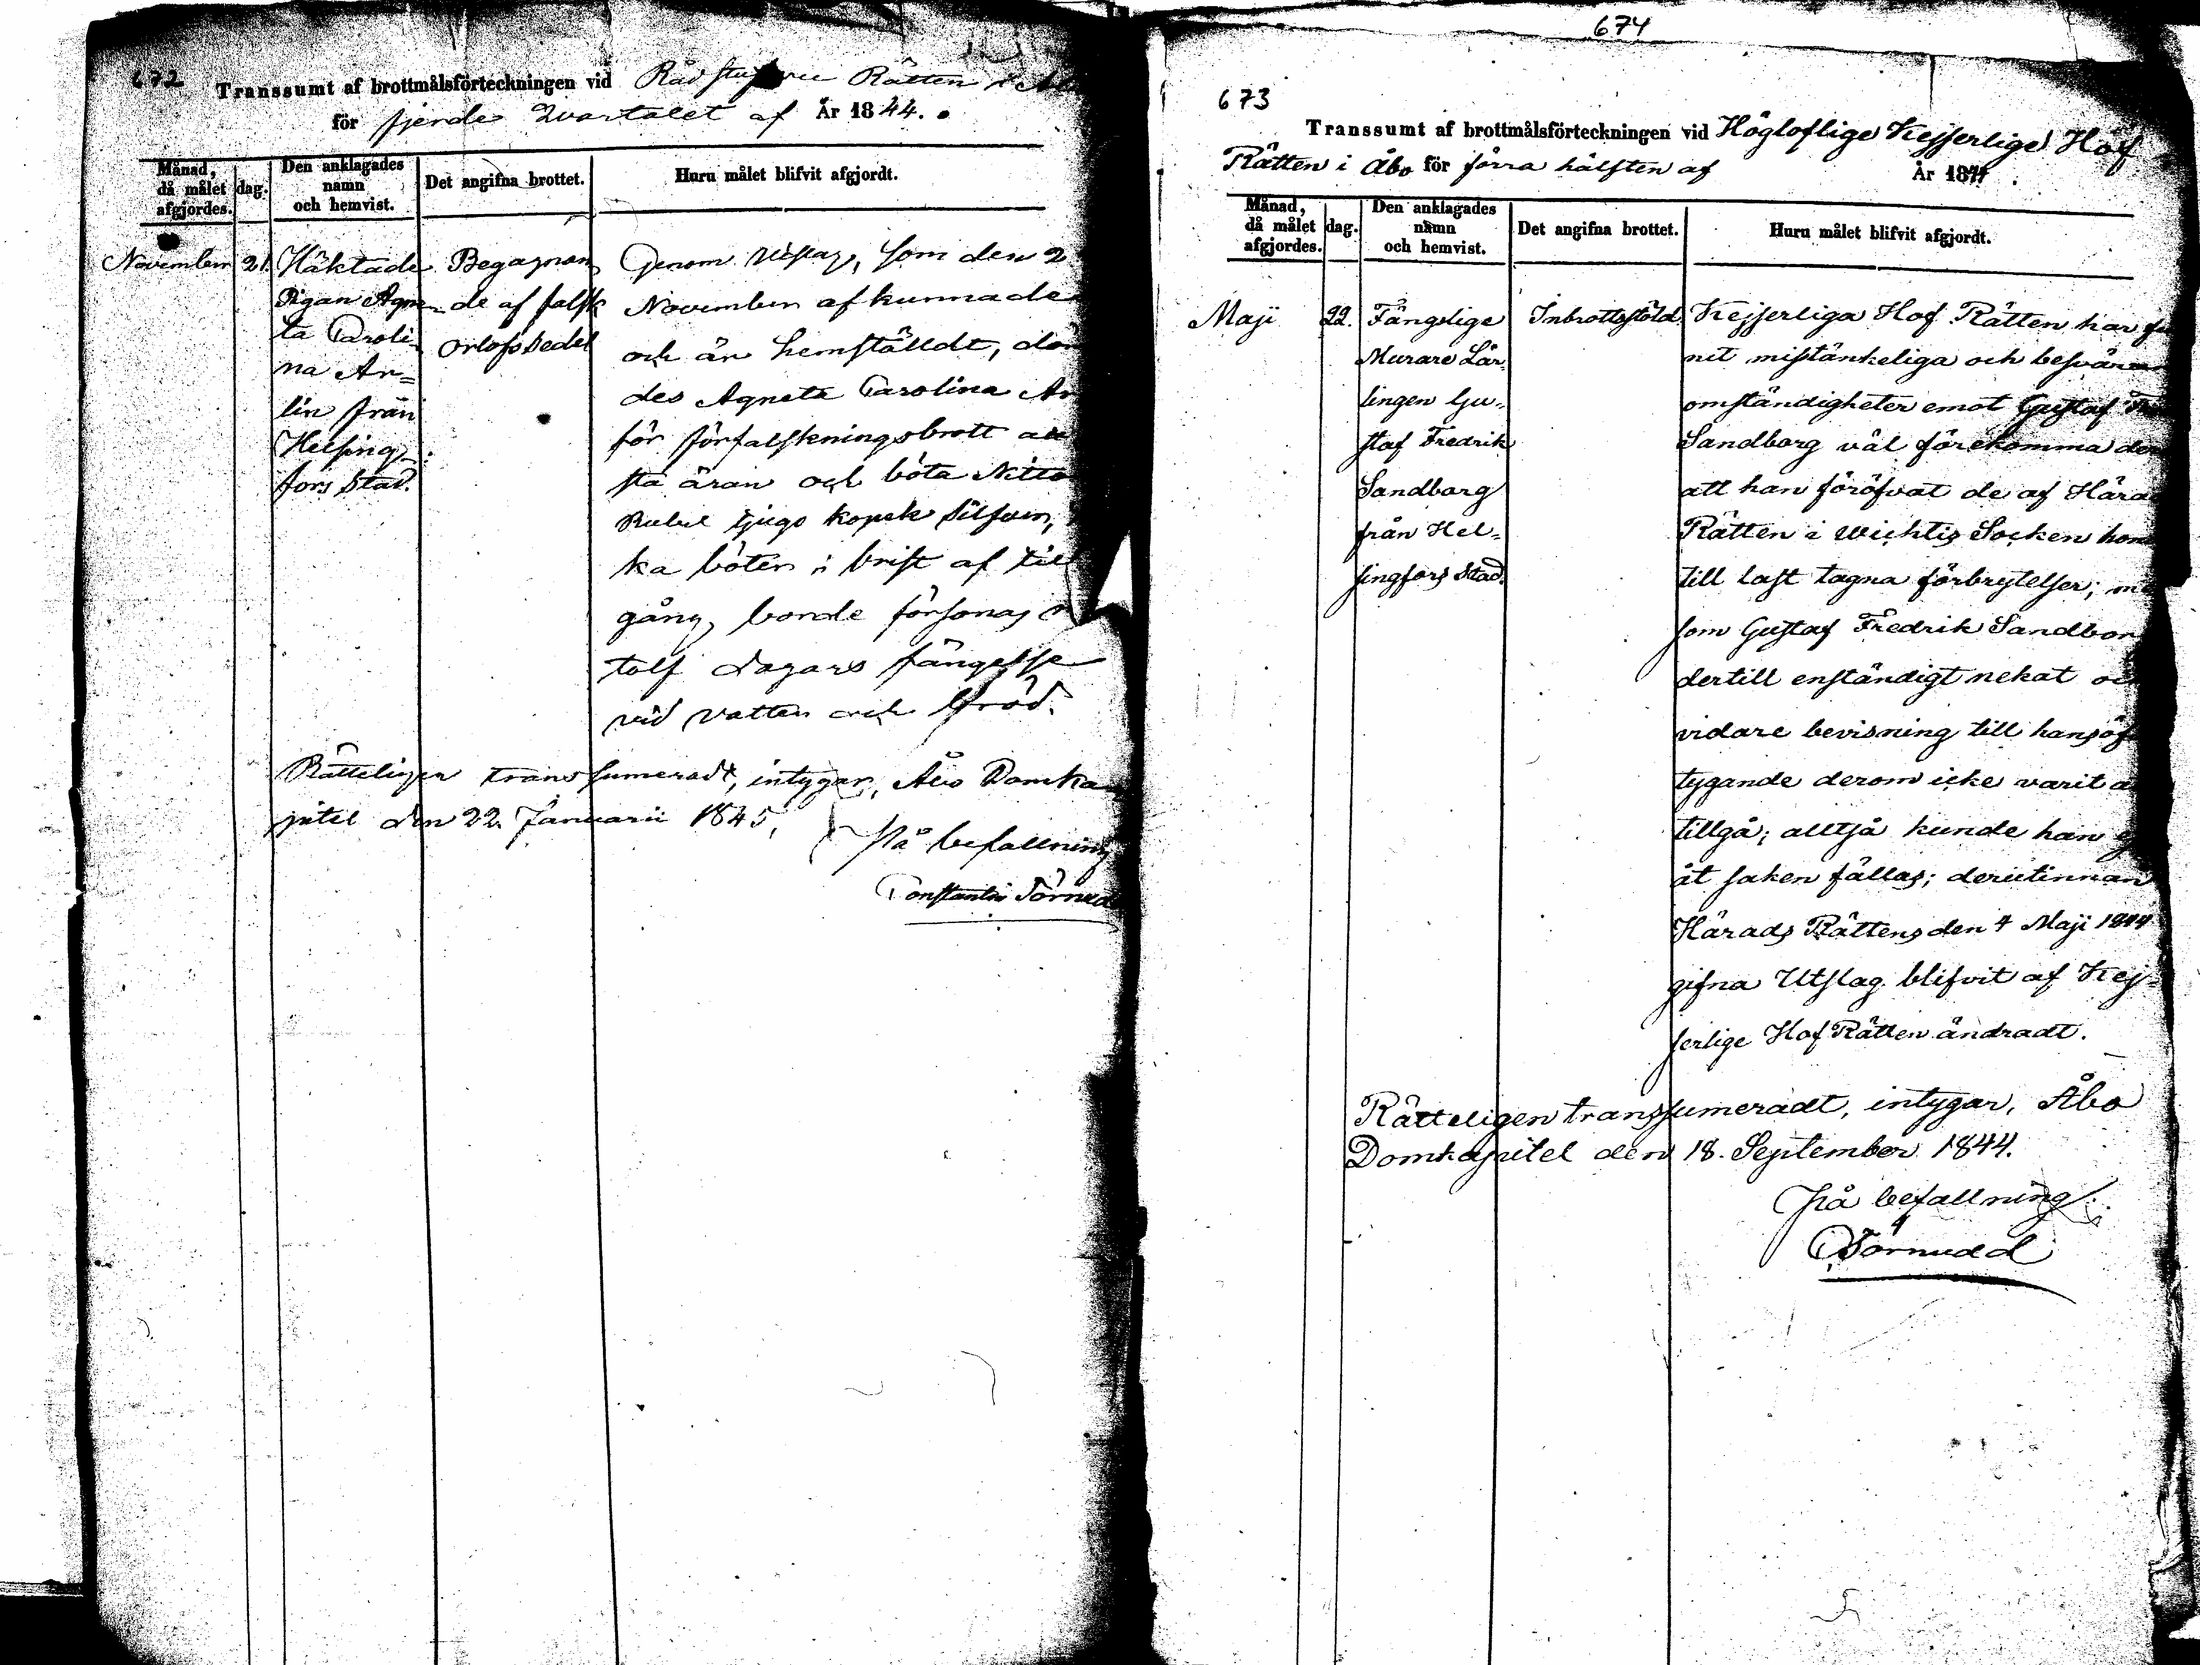 672
Transsumt af brottmålsförteckningen vid Rådstufvu Rätten i
för fjerde Qvartalet af År 1844.
Månad, då målet afgjordes.
dag.
Den anklagades namn och hemvist.
Det angifna brottet.
Huru målet blifvit afgjordt.
November
21.
Häktade
Pigan Agne-
ta Caroli-
na Ar=
lin från
Helsing-
fors Stad.
Begagnan
de af falsk
Orlofssedel
Genom Utslag, som den 2
November afkunnade
och är hemställdt, döm
des Agneta Carolina Ar
för förfalskningsbrott
sta äran och böta
Rubel tjugo kopek Silfver,
ka böter i brist af till
gång, borde försonas
tolf dagars fängelse
vid vatten och bröd.
Rätteligen transsumeradt, intygar, Åbo Domka
pitel den 22. Januarii 1845,
På befallning
Constantin Törnudd
674
673
Transsumt af brottmålsförteckningen vid Högloflige Kejserlige Hof
Rätten i Åbo för förra hälften af År 1844.
Månad, då målet afgjordes.
dag.
Den anklagades namn och hemvist.
Det angifna brottet.
Huru målet blifvit afgjordt.
Maji
22.
Fängslige
Murare Lär-
lingen Gu-
staf Fredrik
Sandborg
från Hel-
singfors Stad.
Inbrottsstöld.
Kejserliga Hof Rätten har fun
nit misstänkeliga och besvära
omständigheter emot Gustaf
Sandborg väl förekomma der
att han föröfvat de af Härads
Rätten i Wichtis Socken hon
till last tagna förbrytelser; me
som Gustaf Fredrik Sandbor
dertill enständigt nekat och
vidare bevisning till hans öf
tygande derom icke varit a
tillgå; alltså kunde han
åt saken fällas; derutinnan
Härads Rättens den 4 Maji 1844
gifna Utslag blifvit af Kej-
serlige Hof Rätten ändradt.
Rätteligen transsumeradt, intygar, Åbo
Domkapitel den 18. September 1844.
På befallning
C Törnudd